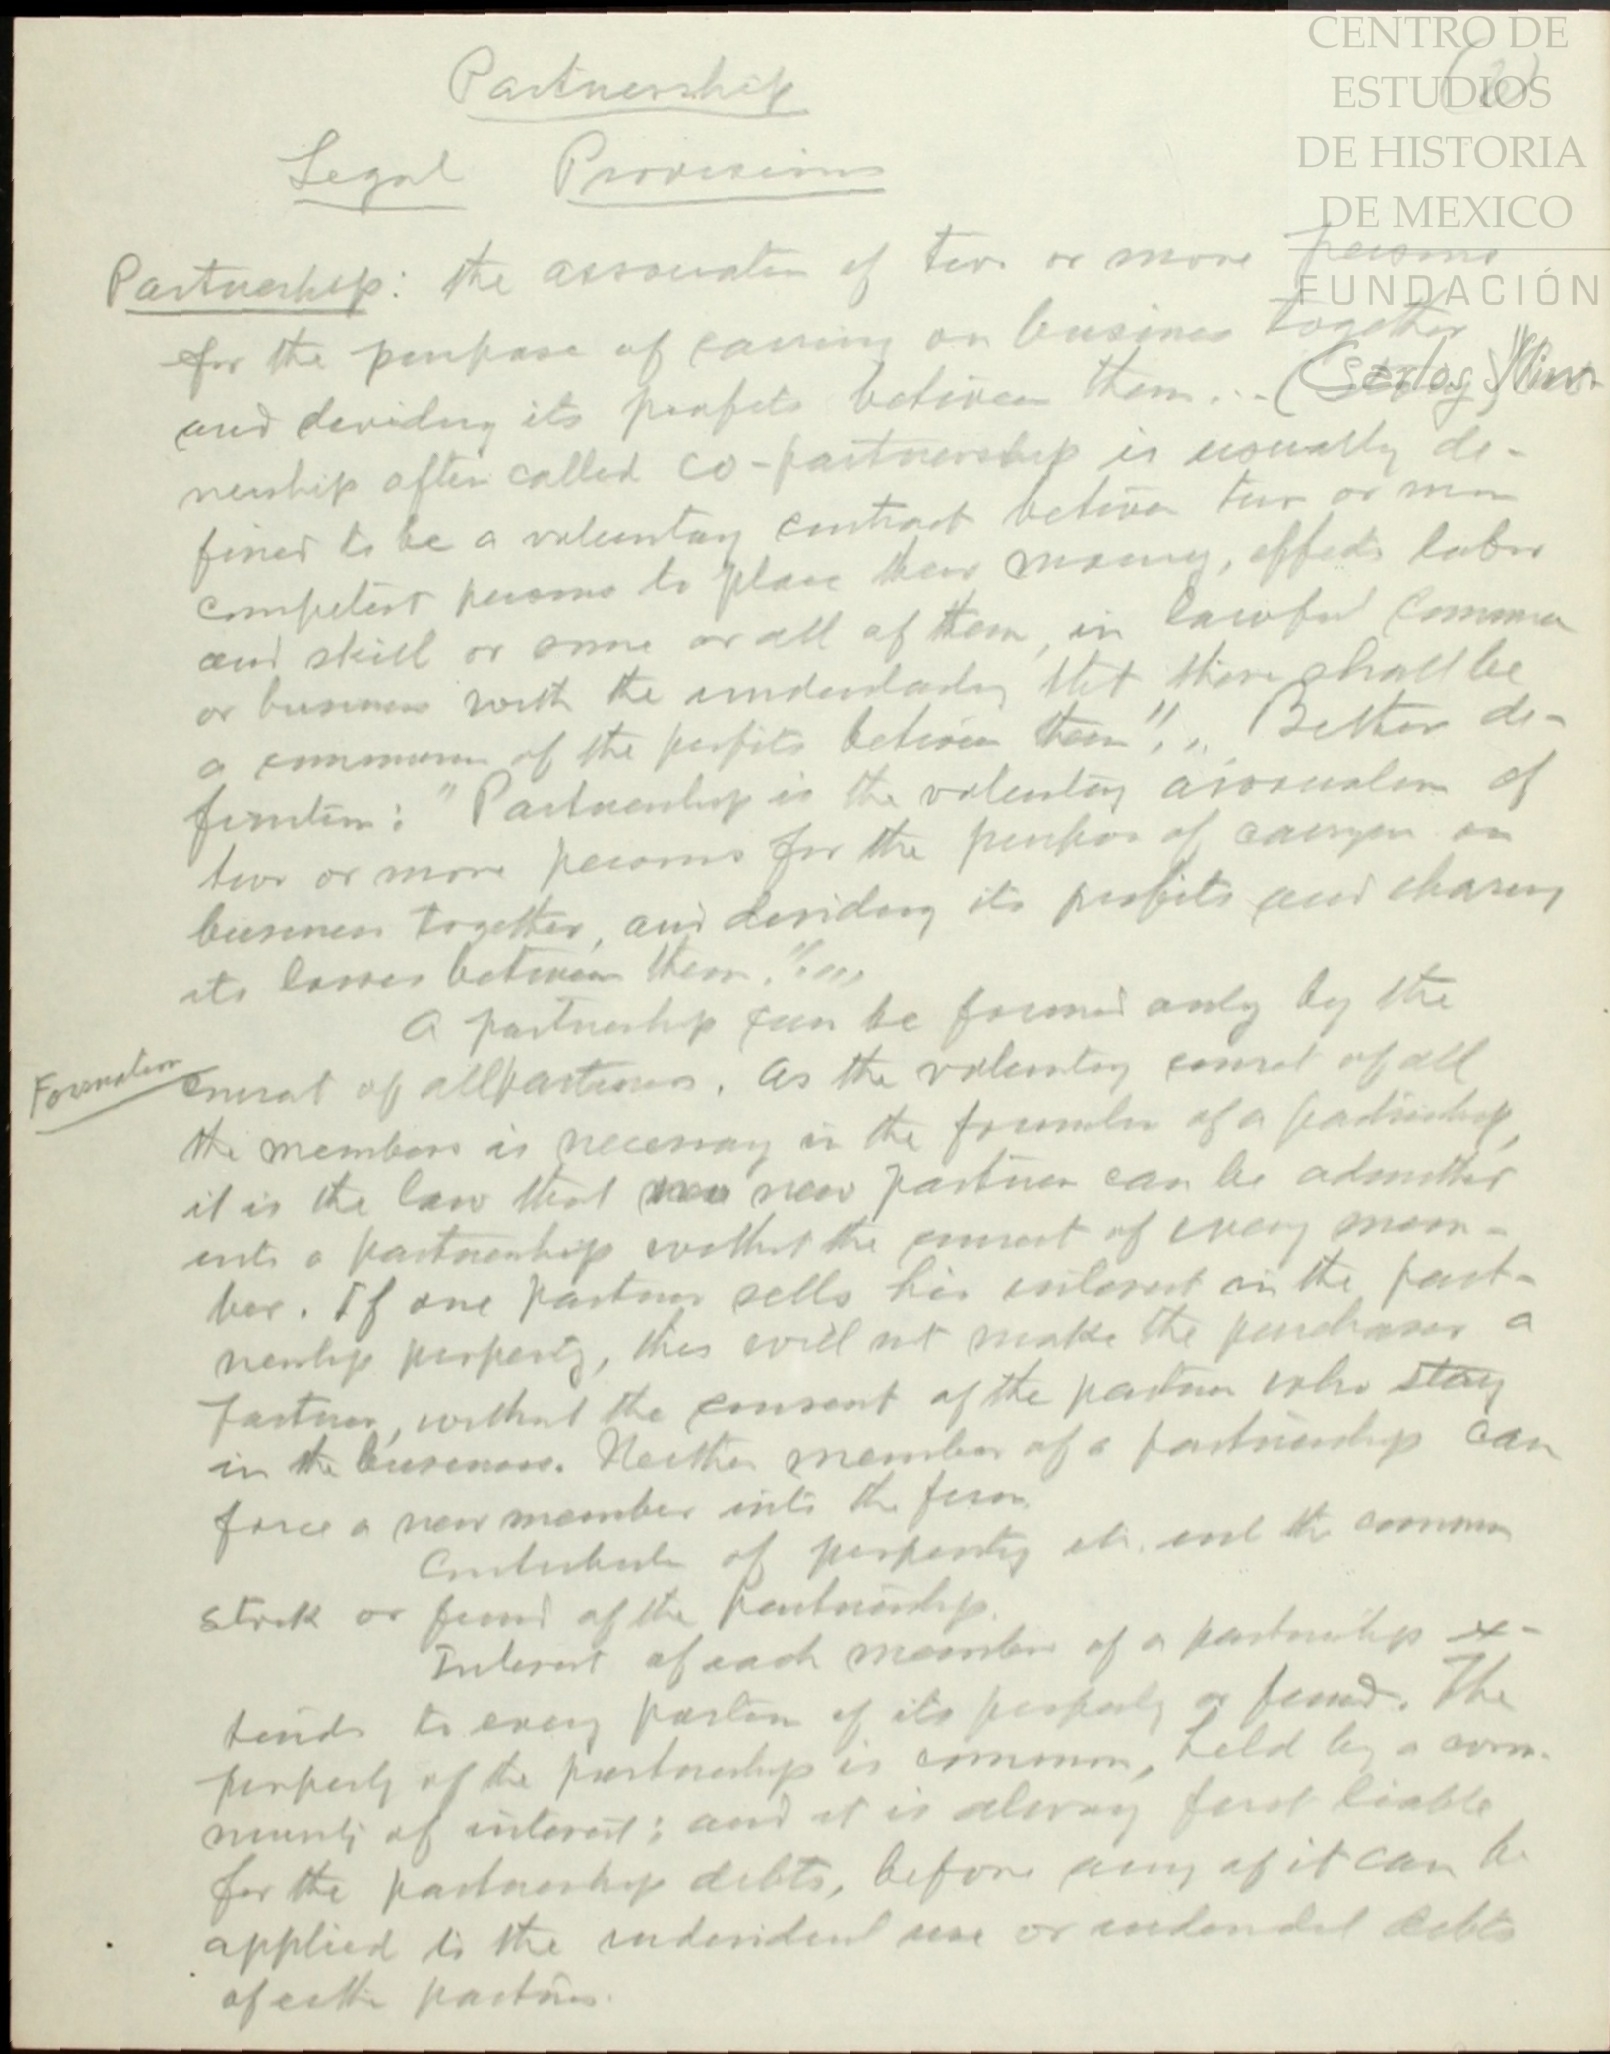 Partnership
Legal Provisions
Partnership: the association of two or more persons
for the purpose of carring on business together
and dividing its profits between them...
nership often called co-partnership is usually de-
fined to be a voluntary contract between two or more
competent persons to place their money, effects labor
and skill or some or all of them, in lawful commerce
or business with the understanding that there shall be
a communion of the profits between them"... Better de-
finition: "Partnership is the voluntary association of
two or more persons for the purpose of carrying on
business together, and dividing its profits and sharing
its losses between them."...
A partnership can be formed only by the
Formation
consent of all partners. As the voluntary consent of all
the members is necessary in the formation of a partnership,
it is the law that no new partner can be admitted
into a partnership without the consent of every mem-
ber. If one partner sells his interest in the part-
nership property, this will not make the purchaser a
partner, without the consent of the partner who stay
in the business. Neither member of a partnership can
force a new member into the firm.
Contribute of property etc. into the common
stock or fund of the Partnership.
Interest of each member of a partnership ex-
tends to every portion of its property or fund. The
property of the partnership is common, held by a com-
munity of interest; and it is always first liable
for the partnership debts, before any of it can be
applied to the individual use or individual debts
of either partner.
CENTRO DE
ESTUDIOS
DE HISTORIA
DE MEXICO
FUNDACIÓN
Carlos Slim